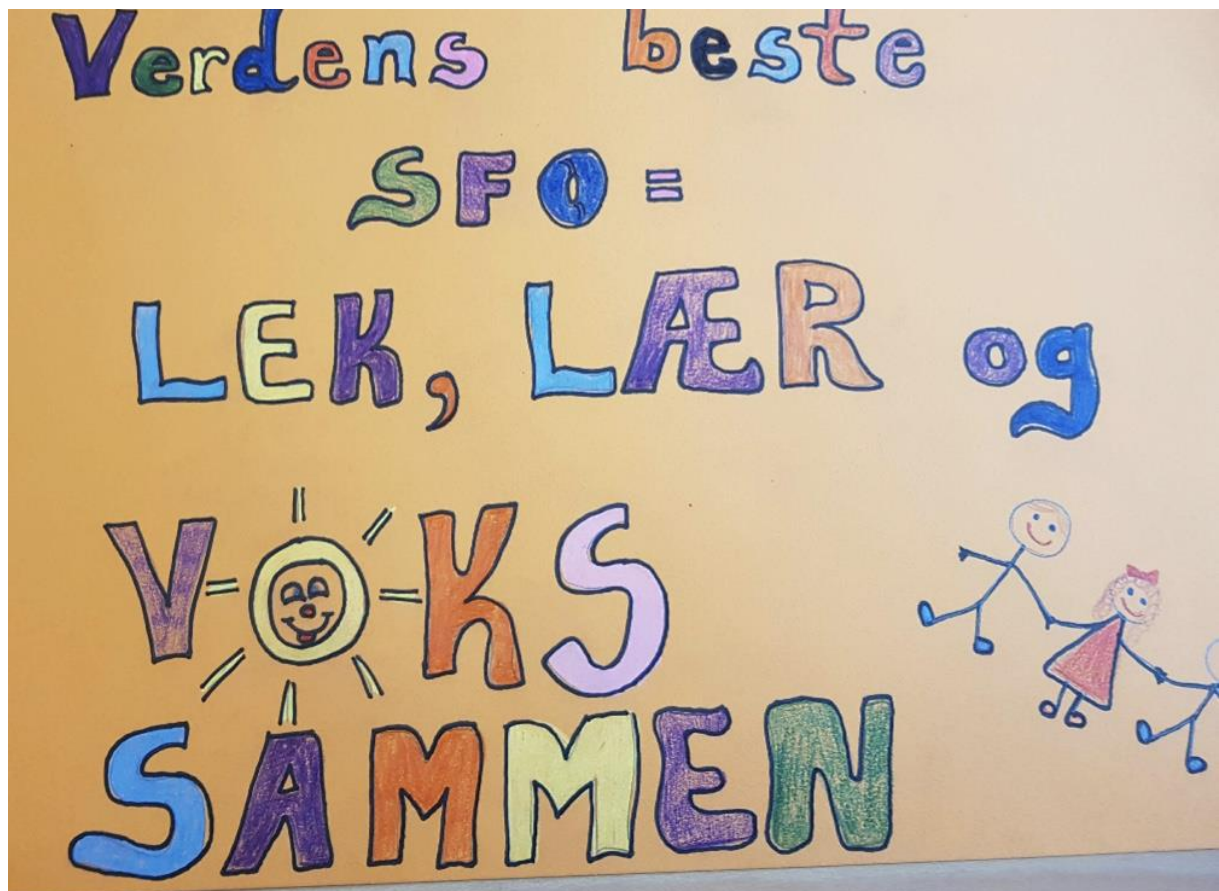 Verdens beste
SFO =
LEK, LÆR og
VOKS
SAMMEN